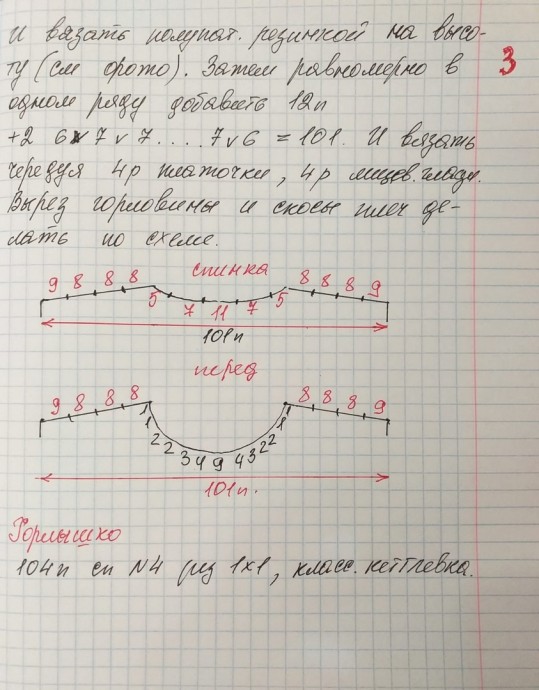 и вязать полупат. резинкой на высо-
ту (см фото). Затем равномерно в
3
одном ряду добавить 12п
+2 6v7v7....7v6 = 101. И вязать
чередуя 4р платочки, 4р лицев. глади.
Вырез горловины и скосы плеч де-
лать по схеме.
спинка
9 8 8 8 5 7 11 7 5 8 8 8 9
101п
перед
9 8 8 8 1 1 2 2 3 4 9 4 3 2 2 1 1 8 8 8 9
101п.
Горлышко
104п сп N4 рез 1х1, класс. кеттлевка.